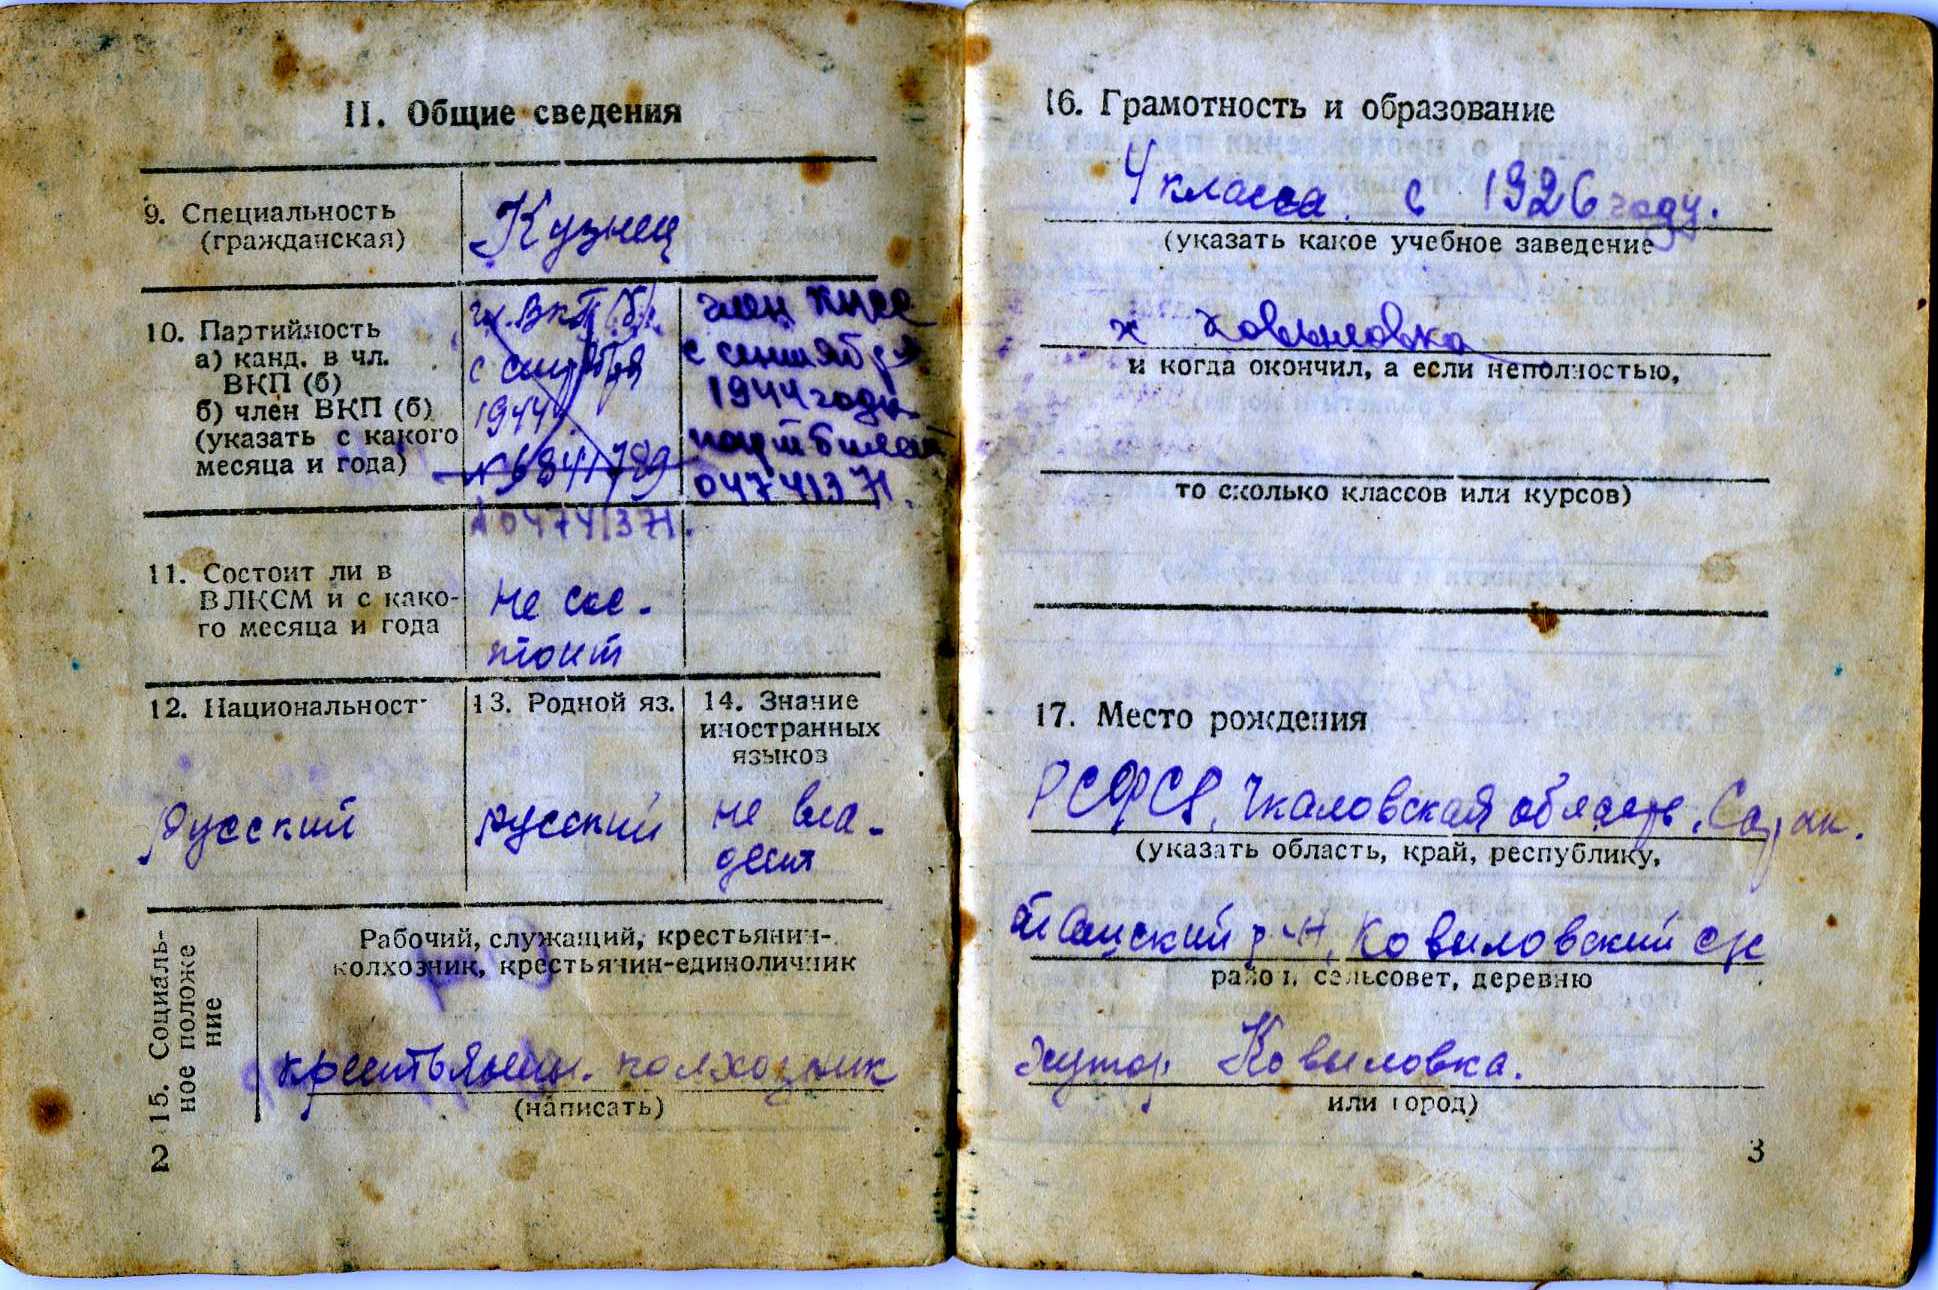 II. Общие сведения
9. Специальность
(гражданская)
Кузнец
10. Партийность
а) канд. в чл.
ВКП (б)
б) член ВКП (б)
(указать с какого
месяца и года)
чл. ВКП(б)
с сентября
1944
№ 6841789
№ 04741371.
член КПСС
с сентября
1944 году
партбилет
04741371.
11. Состоит ли в
ВЛКСМ и с како-
го месяца и года
не сос-
тоит
12. Национальност
Русский
13. Родной яз.
русский
14. Знание
иностранных
языков
не вла-
деет
15. Социаль-
ное положе
ние
Рабочий, служащий, крестьянин-
колхозник, крестьянин-единоличник
крестьянин. колхозник
(написать)
2
16. Грамотность и образование
4 класса. с 1926 году.
(указать какое учебное заведение
х Ковыловка
и когда окончил, а если неполностью,
то сколько классов или курсов)
17. Место рождения
РСФСР, Чкаловская область,
(указать область, край, республику,
р-н, Ковыловский с/с
район, сельсовет, деревню
хутор Ковыловка.
или город)
3